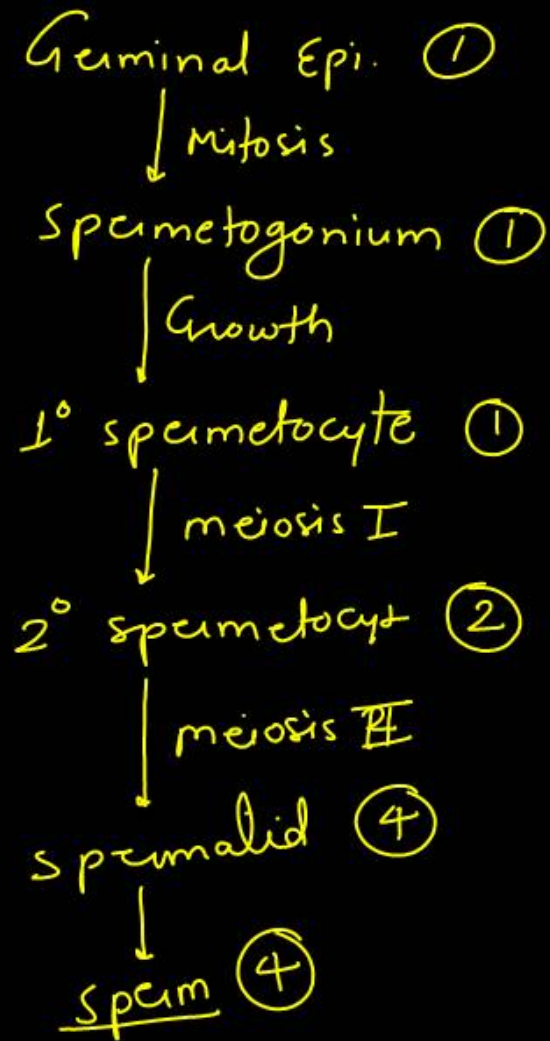 Germinal Epi. ①
Mitosis
Spermetogonium ①
Growth
1° spermetocyte ①
meiosis I
2° spermetocyt ②
meiosis II
spermatid ④
sperm ④